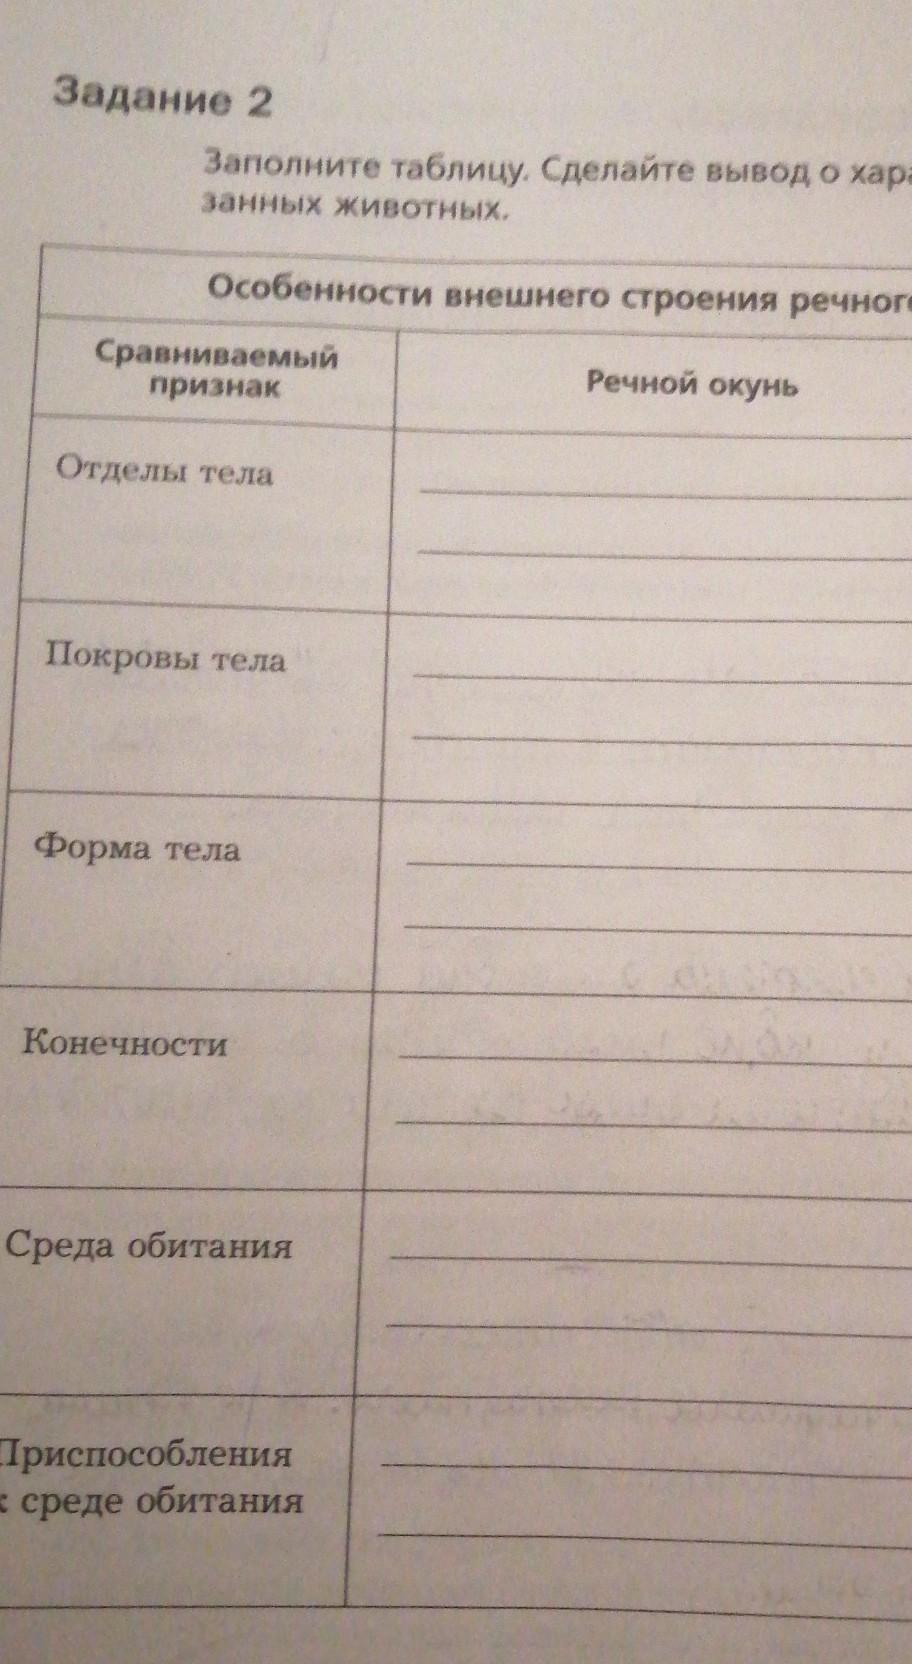 Задание 2
Заполните таблицу. Сделайте вывод о хара
занных животных.
Особенности внешнего строения речного
Сравниваемый
признак
Речной окунь
Отделы тела
Покровы тела
Форма тела
Конечности
Среда обитания
Приспособления
к среде обитания